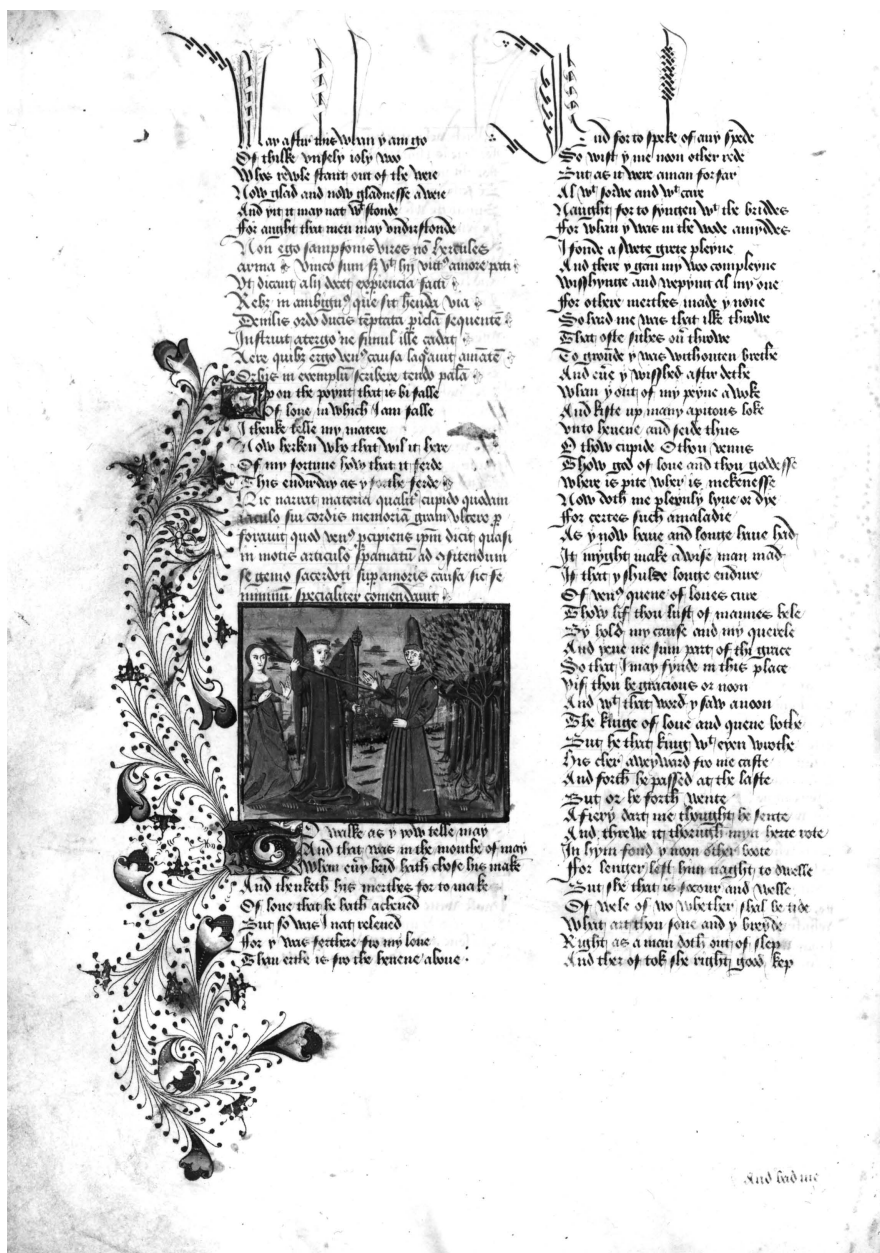 May aftir this whan y am go
Of thilke vnsely ioly woo
Whos rewle stant out of the weie
Now glad and now gladnesse aweie
And yit it may nat wt stonde
ffor aught that men may vndirstonde
Non ego sampsonis vires nō hercules
arma vinco sum
Vt dicant alij docet expiencia facti
Rebȝ in ambiguis que sit via
ordo ducis tēptata picla sequentē
Instruit atergo ne simul ille cadat
ergo venꝰ causa amātē
Orbis in exemplū scribere tendo palā
Vpon the poynt that is bi falle
Of loue in which I am falle
I thenke telle my matere
Now herken who that wil it here
Of my fortune how that it ferde
This endirday as y forthe ferde
Hic narrat materia qualitꝰ cupido quodam
iaculo sui cordis memoriā
forauit quod venꝰ pcipiens ipm dicit quasi
in motis articulo spasmatū ad
se genio sacerdoti sup amoris causa sic se
minimū specialiter comendauit
To walke as y yow telle may
And that was in the monthe of may
Whan euy brid hath chose his make
And thenketh his merthes for to make
Of loue that he hath acheued
But so was I nat releued
ffor y was ferthere fro my loue
Than erthe is fro the heuene aboue
And for to speke of any spede
So wist y me noon other rede
But as it were aman forfar
Al wt sorwe and wt care
Naught for to syngen wt the briddes
ffor whan y was in the wode amyddes
I fonde a swete grete pleyne
And there y gan my woo compleyne
Wisshynge and wepyng al myn one
ffor othere merthes made y none
So hard me was that ilke throwe
That ofte sithes ouꝰ throwe
To groūde y was withouten brethe
And euꝰe y wisshed aftir dethe
Whan y out of my peyne a woke
And kiste up many apitous loke
Vnto heuene and seide thus
O thow cupide O thou venus
Thow god of loue and thou goddesse
Where is pite wher is mekenesse
Now doth me pleynly lyue or dye
ffor certes such amaladie
As y now haue and longe haue had
It myght make a wise man mad
If that y shulde longe endure
Of venꝰ quene of loues cure
Thow lif thou lust of mannes hele
By hold my cause and my querele
And yeue me sum part of thi grace
So that I may fynde in this place
Yif thou be gracious or noon
And wt that word y saw anoon
The kinge of loue and quene bothe
But he that king wt eyen wrothe
His cher aweyward fro me caste
And forth he passed at the laste
But or he forth wente
A fiery dart me thought he hente
And threwe it thorugh myn herte rote
In hym fond y noon other boote
ffor lenger lest him naght to dwelle
But she that is socour and welle
Of wele of wo whether shal be tide
What art thou sone and y breyde
Right as a man doth out of slep
And ther of tok she right good kep
And bad me